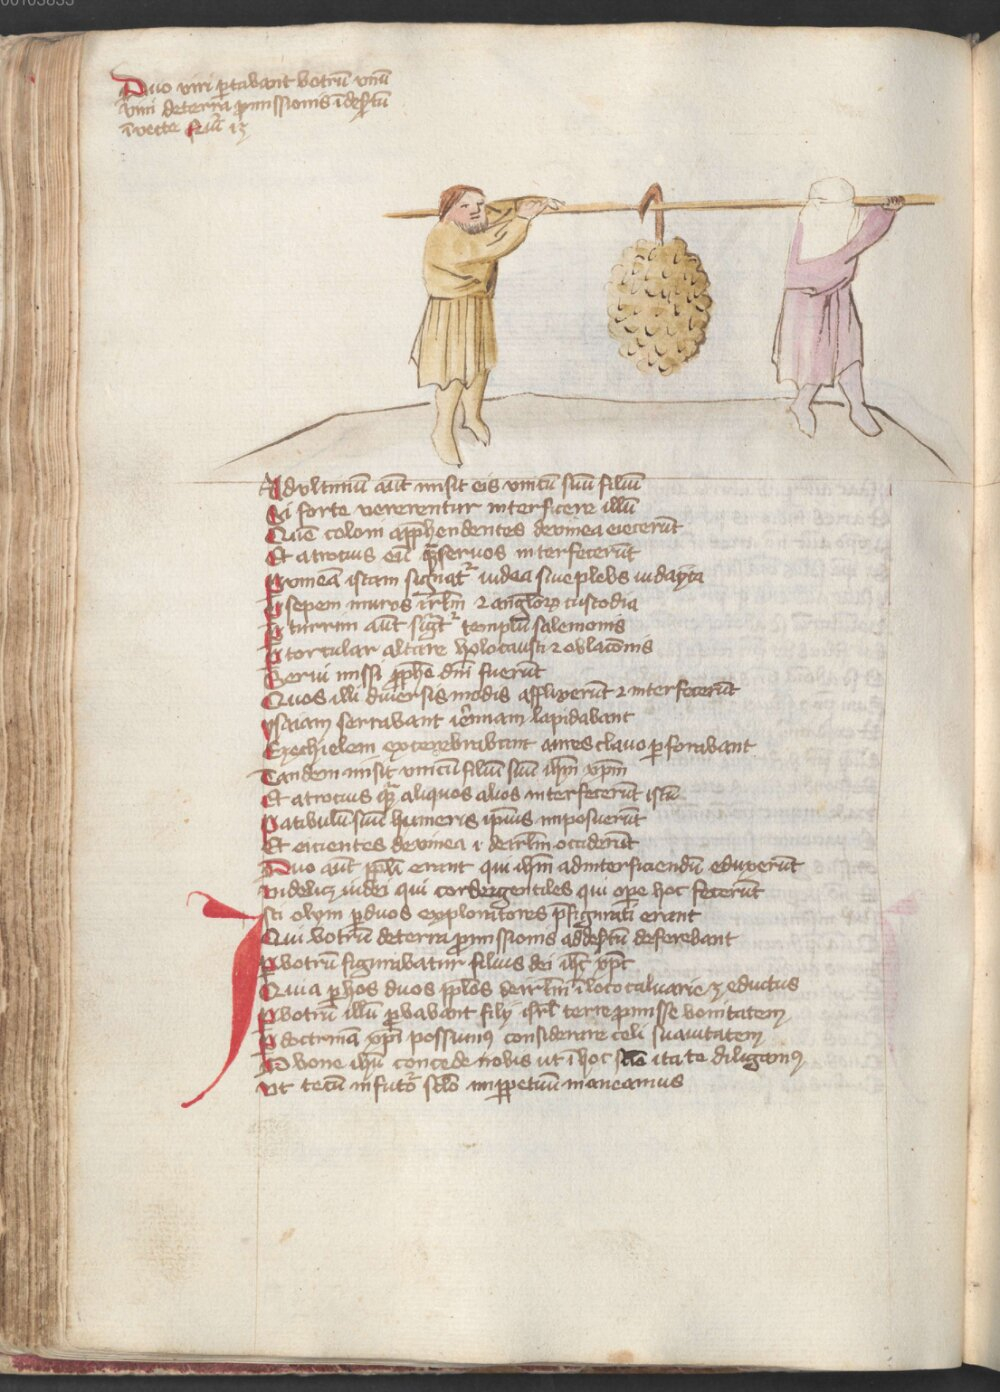 00103855
Duo viri p̱tabant botrū vnū
vini de terra ꝓmissionis ī deṣtū
ī vecte Neū 13
Ad vltimū aūt misit eis vnicū suū filiū
Si forte vererentur interficere illū
Quē coloni apphendentes de vinea eiecerūt
Et atrocius eū qͣ seruos interfecerūt
Per vineā istam signatͬ iudea siue plebs iudayca
P sepem muros irłm ⁊ angloꝝ custodia
P turrim aūt sigͣtͬ templū salemonis
P torcular altare holocausti ⁊ oblacōnis
Serui missi ꝓphe dnī fuerūt
Quos illi diuersis modis afflixerūt ⁊ interfecerūt
ysaiam serrabant iermiam lapidabant
Ezechielem excerebrabant amos clauo ꝑforabant
Tandem misit vnicū filiū suū ihm̄ xpm̄
Et atrocius qͣ aliquos alios interfecerūt istū
Patibulū suū humeris ipsius imposuerūt
Et eicientes de vinea i de irłm occiderūt
Duo aūt ppłi erant qui ihm̄ ad interficiendū eduxerūt
videlicꝫ iudei qui corde ⁊ gentiles qui oꝑe hoc fecerūt
Isti olym ꝑ duos exploratores p̄figurati erant
Qui botrū de terra ꝓmissionis ad deṣtū deferebant
P botrū figurabatur filius dei ihc̄ xpc̄
Quia ꝑ hos duos ppłos de irłm ī loco caluarie ꝫ eductus
P botrū illū ꝓbabant filij isrł terre ꝓmisse bonitatem
P doctrinā xpī possumꝰ considerare celi suauitatem
O bone ihū concede nobis ut ī hoc scło ita te diligamꝰ
Ut tecū in futōr scło in ppetuū maneamus